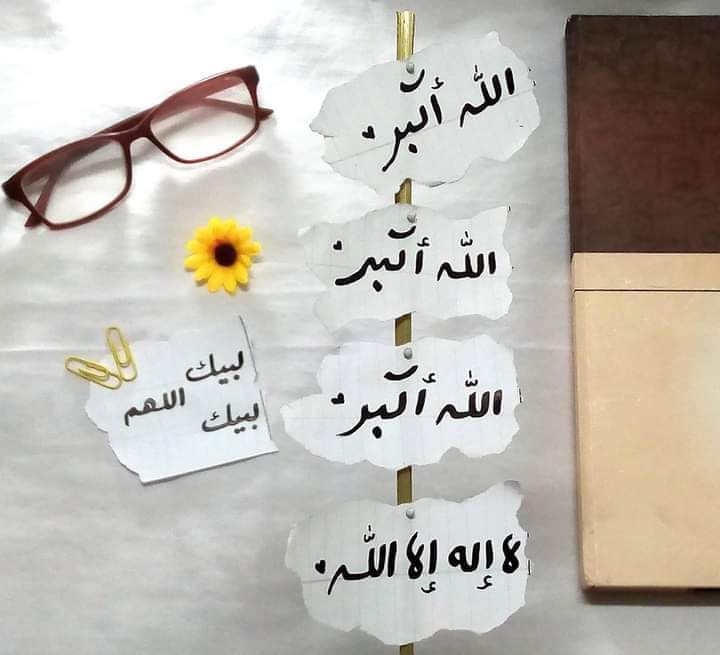 الله أكبر.
الله أكبر.
الله أكبر.
لا إله إلا الله.
لبيك
اللهم
لبيك